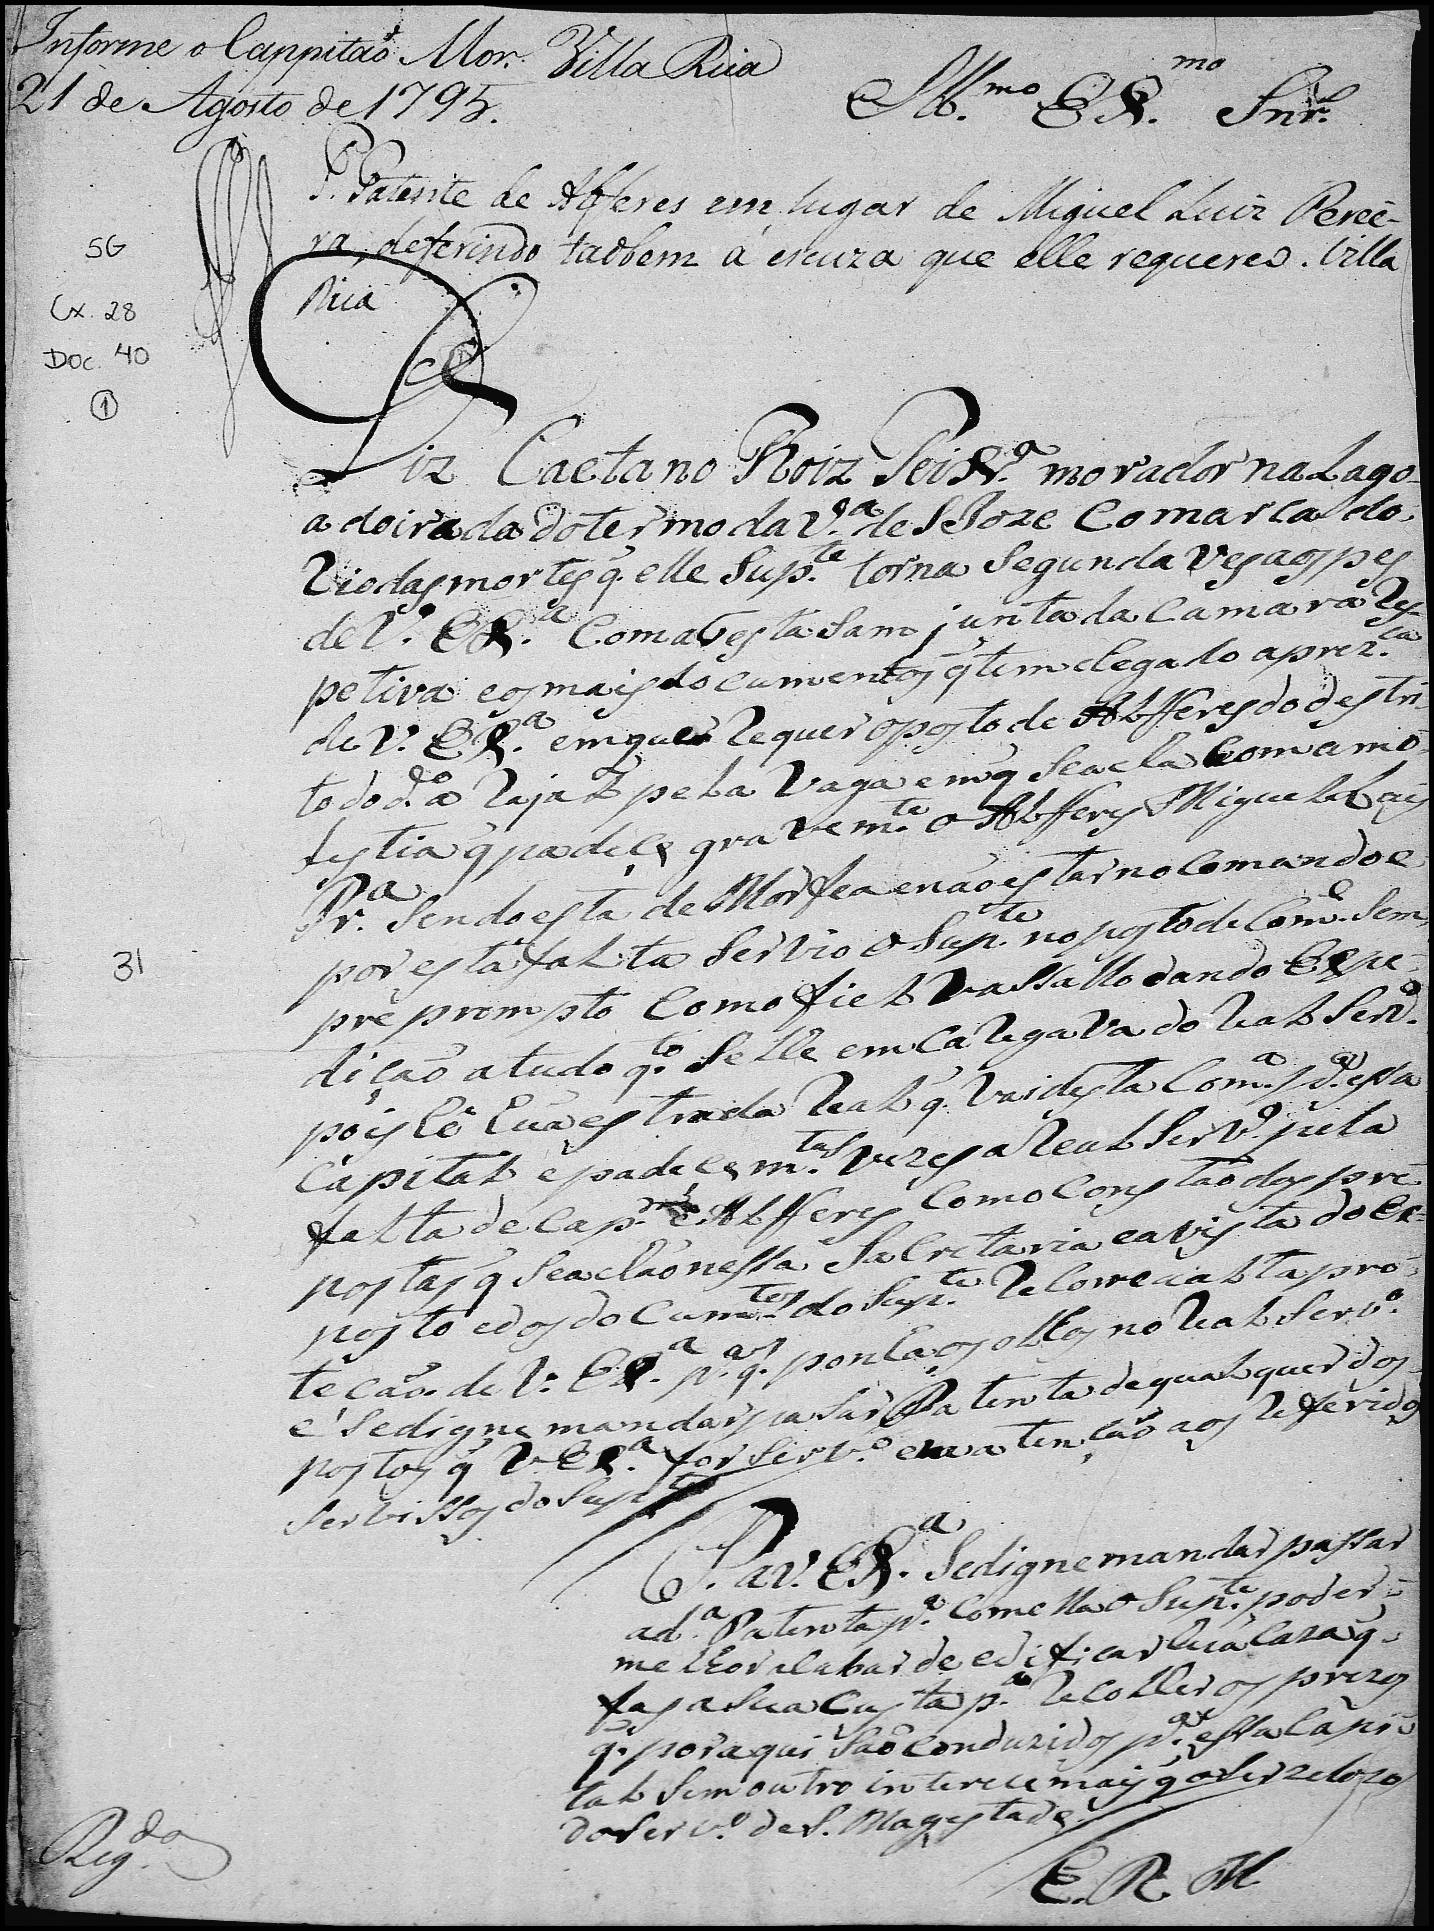 Informe o Cappitaõ Mor. Villa Rica
21 de Agosto de 1795.
Ill.mo EX.mo Snr.
P. Patente de Alferes em lugar de Miguel Luiz Perei-
ra, deferindo taõbem á escuza que elle requereo. Villa
Rica
SG
Cx. 28
Doc. 40
1
Diz Caetano Roiz Peix.a morador na Lago-
a doirada do termo da V.a de S Joze Comarca do
Rio das mortes q. elle Sup.te torna Segunda Ves aos pes
de V. EX.a Com atestasam junta da Camara Res-
petiva e os mais documentos q tem elegado a prez.ca
de V. EX.a em que Requer o posto de Alfferes do destri-
to do d.o a Rajal pela Vaga em q Se acha Com a mo-
lestia q padece gravem.te o Alfferes Miguel Luis
Pr.a Sendo esta de Morfea e naõ estar no Comando e
por esta falta Servio o Sup.te no posto de Com.e Sem-
pre prompto Como fiel Vassallo dando Expe-
diçaõ a tudo q.to Se lhe emCaRegava do Real Serv.o
pois he huã estrada Real q. Vai desta Com.a p.a essa
Capital e padece m.tas vezes a Real Serv.o pela
falta de Cap.m e Alfferes Como Constaõ dos pre-
postas q Se achaõ nessa SaCretaria e a vista do Ex-
posto e dos doCum.tos do Sup.te ReCorre a alta pro-
teçaõ de V. EX.a p.a q. ponha os olhos no Real Serv.o
e Se digne mandar pasar Patenta de qualquer dos
postos q V. EX.a for Serv.o em atençaõ aos Referidos
Servissos do Sup.te
P. a V. EX.a Se digne mandar passar
a d.a Patenta p.a Com ella o Sup.te poder
melhor acabar de edificar huã Caza q.
fas a Sua Custa p.a Recolher os prezos
q. por aqui Saõ Conduzidos p.a essa Capi-
tal Sem outro interece mais q o Ser zelozo
do Serv.o de S. Magestade.
E. R. M.
31
Reg.do